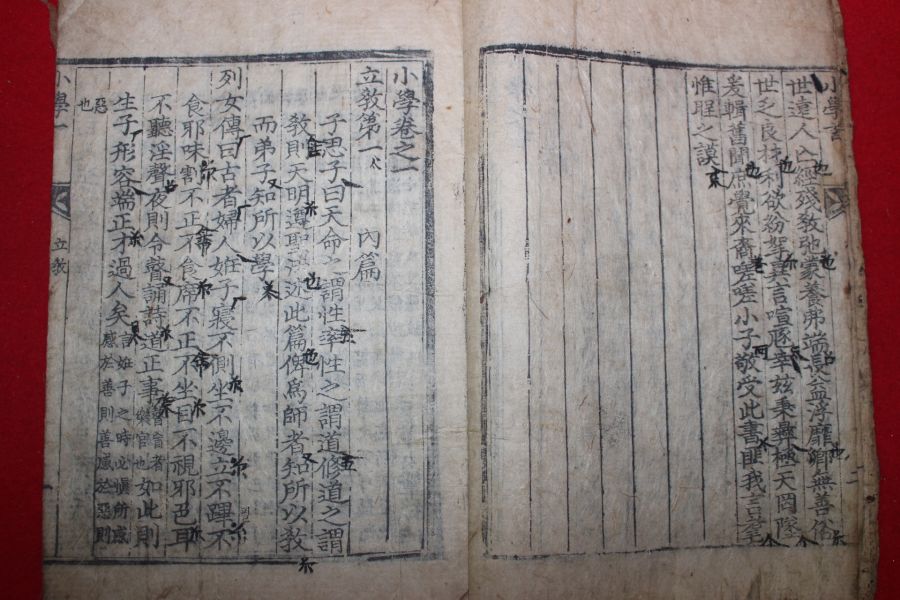 小學書
二
世遠人亡經殘敎弛蒙養弗端長益浮靡鄕無善俗
世乏良材利欲紛挐異言喧豗幸玆秉彝極天罔墜
爰輯舊聞庶覺來裔嗟嗟小子敬受此書匪我言耄
惟聖之謨
小學卷之一
立敎第一 內篇
子思子曰天命之謂性率性之謂道修道之謂
敎則天明遵聖法述此篇俾爲師者知所以敎
而弟子知所以學
列女傳曰古者婦人妊子寢不側坐不邊立不蹕不
食耶味割不正不食席不正不坐目不視邪色耳
不聽淫聲夜則令瞽誦詩道正事者樂官也如此則
生子形容端正才過人矣言妊子之時必愼所感感於善則善感於惡則
惡也
小學一
立敎